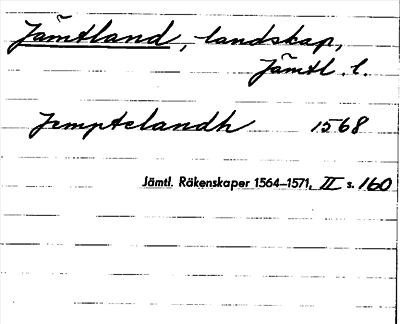 Jämtland, landskap,
Jämtl. l.
Jemptelandh 1568
Jämtl. Räkenskaper 1564–1571, II s. 160